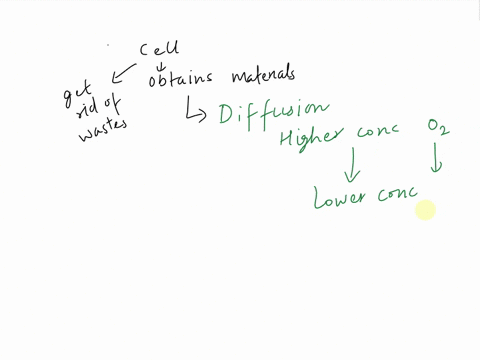 cell
get rid of wastes
obtains materials
Diffusion
Higher conc O2
Lower conc